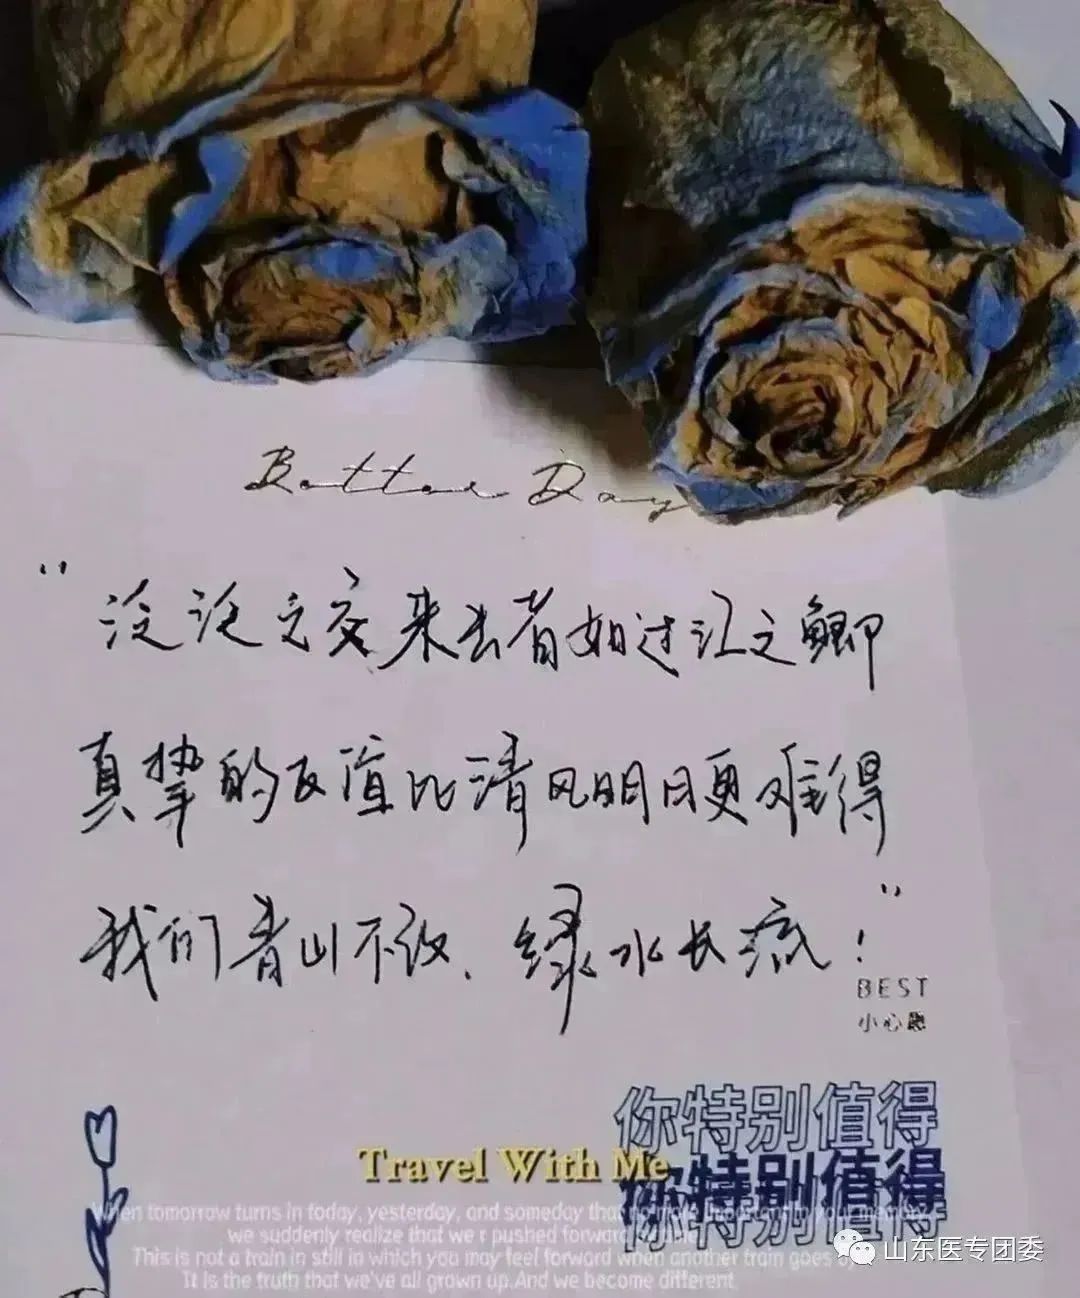 Better Day
“泛泛之交来去者如过江之鲫
真挚的友谊比清风明月更难得
我们青山不改、绿水长流！”
BEST
小心愿
你特别值得
Travel With Me
你特别值得
你特别值得
When tomorrow turns in today, yesterday, and someday that no more important in your memory,
we suddenly realize that we r pushed forward by time.
This is not a train in still in which you may feel forward when another train goes by.
It is the truth that we've all grown up. And we become different.
山东医专团委